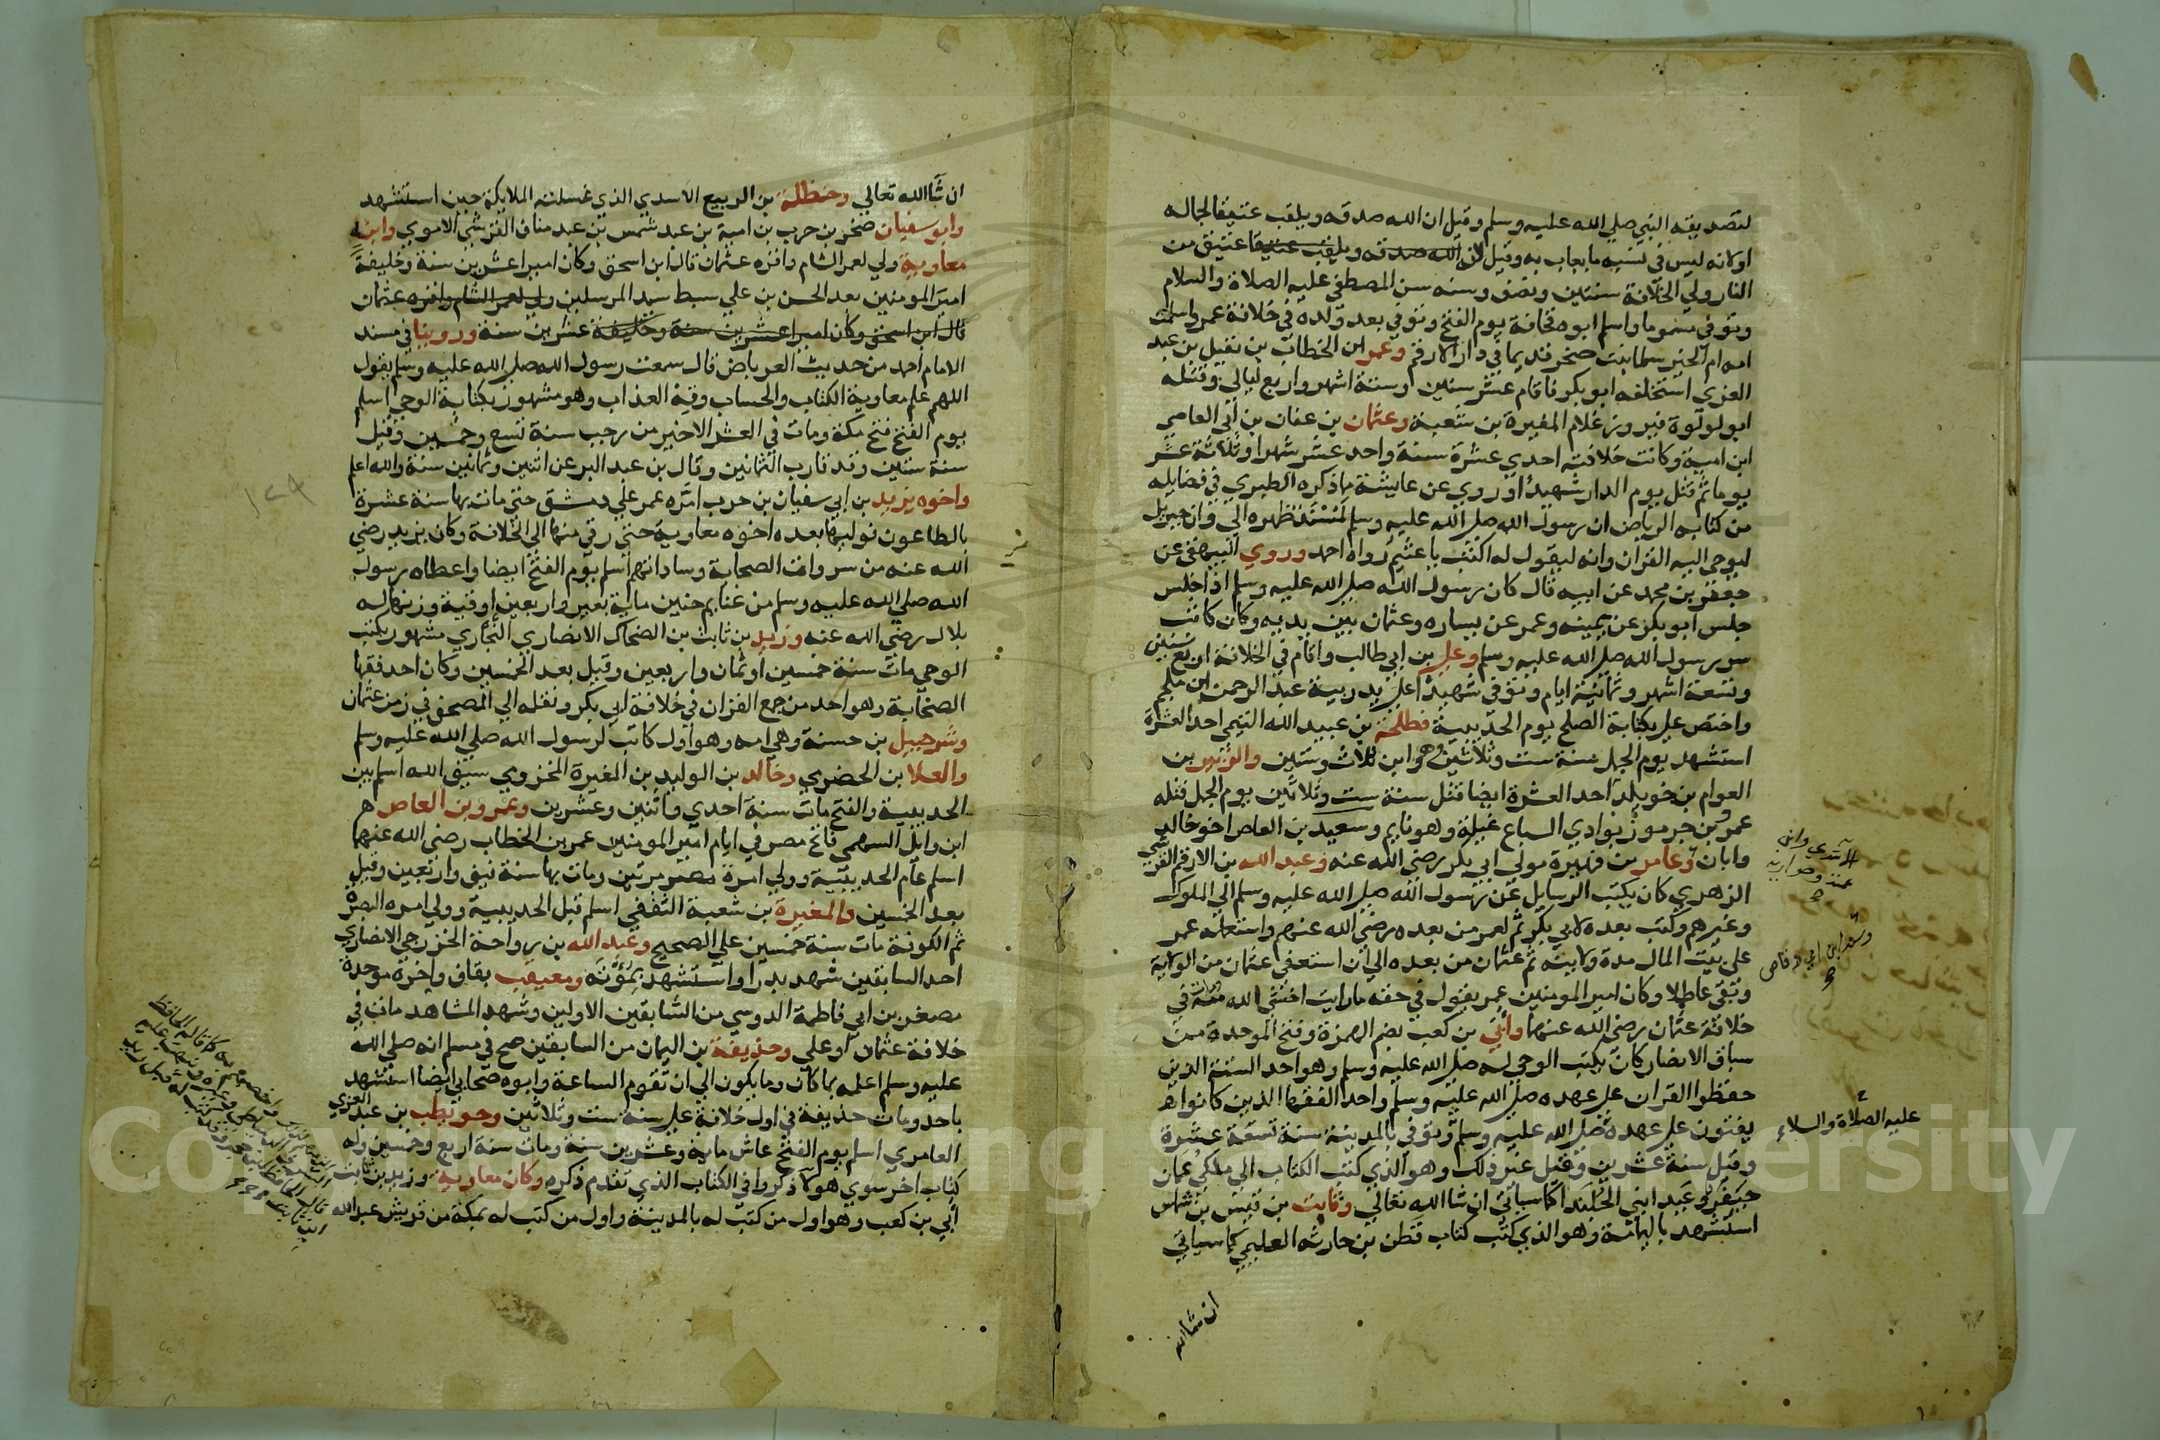 لتصديقه النبي صلي الله عليه وسلم وقيل ان الله صدقه ويلقب عتيقا لجماله
اوكانه ليس في نسبه ما يعاب به وقيل لان الله صدقه ويلقب عتيقا عتيق من
النار ولي الخلافة سنتين ونصف وسنه سن المصطفي عليه الصلاة والسلام
وتوفي مسموما واسلم ابوه قحافة يوم الفتح وتوفي بعد ولده في خلافة عمر واسلمت
امه ام الخير سلما بنت صخر قديما في دار الارقم وعمر ابن الخطاب بن نفيل بن عبد
العزي استخلفه ابو بكر فاقام عشر سنين وستة اشهر واربع ليالي وقتله
ابو لولوة فيروز غلام المغيرة بن شعبة وعثمان بن عفان بن ابي العاصي
ابن امية وكانت خلافته احدي عشرة سنة واحد عشر شهرا وثلاثة عشر
يوما ثم قتل يوم الدار شهيدا وروي عن عايشة ما ذكره الطبري في فضايله
من كتابه الرياض ان رسول الله صلي الله عليه وسلم لمسند ظهره الي وان جبريل
ليوحي اليه القران وانه ليقول له اكتب يا عثيم رواه احمد وروي البيهقي عن
جعفر بن محمد عن ابيه قال كان رسول الله صلي الله عليه وسلم اذا جلس
جلس ابو بكر عن يمينه وعمر عن يساره وعثمان بين يديه وكان كاتب
سر رسول الله صلي الله عليه وسلم وعلي بن ابي طالب واقام في الخلافة اربع سنين
وتسعة اشهر وثمانية ايام وتوفي شهيدا علي يد ربيئة عبد الرحمن ابن ملجم
واختص علي بكتابة الصلح يوم الحديبية فطلحة بن عبيد الله التيمي احد العشرة
استشهد يوم الجمل سنة ست وثلاثين وهو ابن ثلاث وستين والزبير بن
العوام بن خويلد احد العشرة ايضا قتل سنة ست وثلاثين يوم الجمل قتله
عمرو بن جرموز بوادي السباع غيلة وهو نايم وسعيد بن العاص اخو خالد
وابان وعامر بن فهيرة مولي ابي بكر رضي الله عنه وعبد الله بن الارقم القرشي
الزهري كان يكتب الرسايل عن رسول الله صلي الله عليه وسلم الي الملوك
وغيرهم وكتب بعده لابي بكر ثم لعمر من بعده رضي الله عنهم واستعمله عمر
علي بيت المال مدة ولايته ثم عثمان من بعده الي ان استعفي عثمان من الولاية
وبقي عاطلا وكان امير المومنين عمر يقول في حقه ما رايت اخشي الله منه في
خلافة عثمان رضي الله عنهما وأبي بن كعب بضم الهمزة وفتح الموحدة من
سباق الانصار كان يكتب الوحي له صلي الله عليه وسلم وهو احد الستة الذين
حفظوا القران علي عهده صلي الله عليه وسلم واحد الفقها الذين كانوا
يفتون علي عهده صلي الله عليه وسلم توفي بالمدينة سنة تسعة عشرة
وقيل سنة عشرين وقيل غير ذلك وهو الذي كتب الكتاب الي ملكي عمان
جيفر وعبد ابني الجلندا كما سياتي ان شا الله تعالي وثابت بن قيس بن شماس
استشهد باليمامة وهو الذي كتب كتاب قطن بن حارثه العليمي كما سياتي
ان شا الله
وسعد ابن ابي وقاص
عليه الصلاة والسلام
ان شا الله تعالي وحنظلة بن الربيع الاسدي الذي غسلته الملايكة حين استشهد
وابو سفيان صخر بن حرب بن امية بن عبد شمس بن عبد مناف القرشي الاموي وابنه
معاوية ولي لعمر الشام واقره عثمان قال ابن اسحق وكان اميرا عشرين سنة وخليفة
امير المومنين بعد الحسن بن علي سبط سيد المرسلين ولي لعمر الشام واقره عثمان
قال ابن اسحق وكان اميرا عشرين سنة وخليفة عشرين سنة وروينا في مسند
الامام احمد من حديث العرباض قال سمعت رسول الله صلي الله عليه وسلم يقول
اللهم علم معاوية الكتاب والحساب وقه العذاب وهو مشهور بكتابة الوحي اسلم
يوم الفتح فتح مكة ومات في العشر الاخير من رجب سنة تسع وخمسين وقيل
سنة ستين وقد قارب الثمانين وقال بن عبد البر عن اثنين وثمانين سنة والله اعلم
واخوه يزيد بن ابي سفيان بن حرب امره عمر علي دمشق حتي مات بها سنة عشرة
بالطاعون فوليها بعده اخوه معاوية حتي رقي منها الي الخلافة وكان يزيد رضي
الله عنه من سروات الصحابة وساداتهم اسلم يوم الفتح ايضا واعطاه رسول
الله صلي الله عليه وسلم من غنايم حنين ماية بعير واربعين اوقية وزنها له
بلال رضي الله عنه وزيد بن ثابت بن الضحاك الانصاري النجاري مشهور بكتب
الوحي مات سنة خمسين او ثمان واربعين وقيل بعد الخمسين وكان احد فقها
الصحابة وهو احد من جمع القران في خلافة ابي بكر ونقله الي المصحف في زمن عثمان
وشرحبيل بن حسنة وهي امه وهو اول كاتب لرسول الله صلي الله عليه وسلم
والعلا بن الحضرمي وخالد بن الوليد بن المغيرة المخزومي سيف الله اسلم بين
الحديبية والفتح مات سنة احدي واثنين وعشرين وعمرو بن العاص
ابن وايل السهمي فاتح مصر في ايام امير المومنين عمر بن الخطاب رضي الله عنهما
اسلم عام الحديبية وولي امرة مصر مرتين ومات بها سنة نيف واربعين وقيل
بعد الخمسين والمغيرة بن شعبة الثقفي اسلم قبل الحديبية وولي امره البصرة
ثم الكوفة مات سنة خمسين علي الصحيح وعبد الله بن رواحة الخزرجي الانصاري
احد السابقين شهد بدرا واستشهد بمؤته ومعيقيب بقاف واخره موحدة
مصغر بن ابي فاطمة الدوسي من السابقين الاولين وشهد المشاهد مات في
خلافة عثمان او علي وحذيفة بن اليمان من السابقين صح في مسلم انه صلي الله
عليه وسلم اعلمه بما كان وما يكون الي ان تقوم الساعة وابوه صحابي ايضا استشهد
باحد ومات حذيفة في اول خلافة علي سنة ست وثلاثين وحويطب بن عبد العزي
العامري اسلم يوم الفتح عاش ماية وعشرين سنة ومات سنة اربع وخمسين وله
كتاب اخر سوي هولا ذكروا في الكتاب الذي تقدم ذكره وكان معاوية وزيد بن ثابت
أبي بن كعب وهو اول من كتب له بالمدينة واول من كتب له بمكة من قريش عبد الله